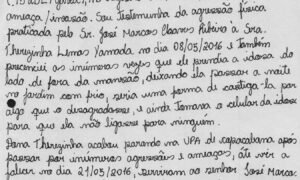 ameaça / invasão. Sou testemunha da agressão física
praticada pelo Sr. José Marcos Chaves Ribeiro à Sra.
Therezinha Lemos Yamada no dia 08/03/2016 e também
presenciei as inúmeras vezes que ele prendia a idosa do
lado de fora da mansão, deixando ela passar a noite
no jardim com frio, seria uma forma de castigá-la por
algo que o desagradasse, e ainda tomava o celular da idosa
para que ela não ligasse para ninguém.
Dona Therezinha acabou parando na UPA de Copacabana após
passar por inúmeras agressões e ameaças, até vir a
falecer no dia 21/03/2016, serviram ao senhor José Marcos